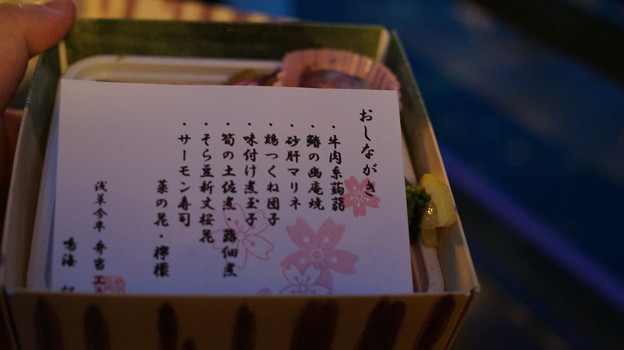 おしながき
・牛肉糸蒟蒻
・鰆の幽庵焼
・砂肝マリネ
・鶏つくね団子
・味付け煮玉子
・筍の土佐煮・蕗佃煮
・そら豆新丈桜花
・サーモン寿司
菜の花・檸檬
浅草今半 弁当工
鳴海